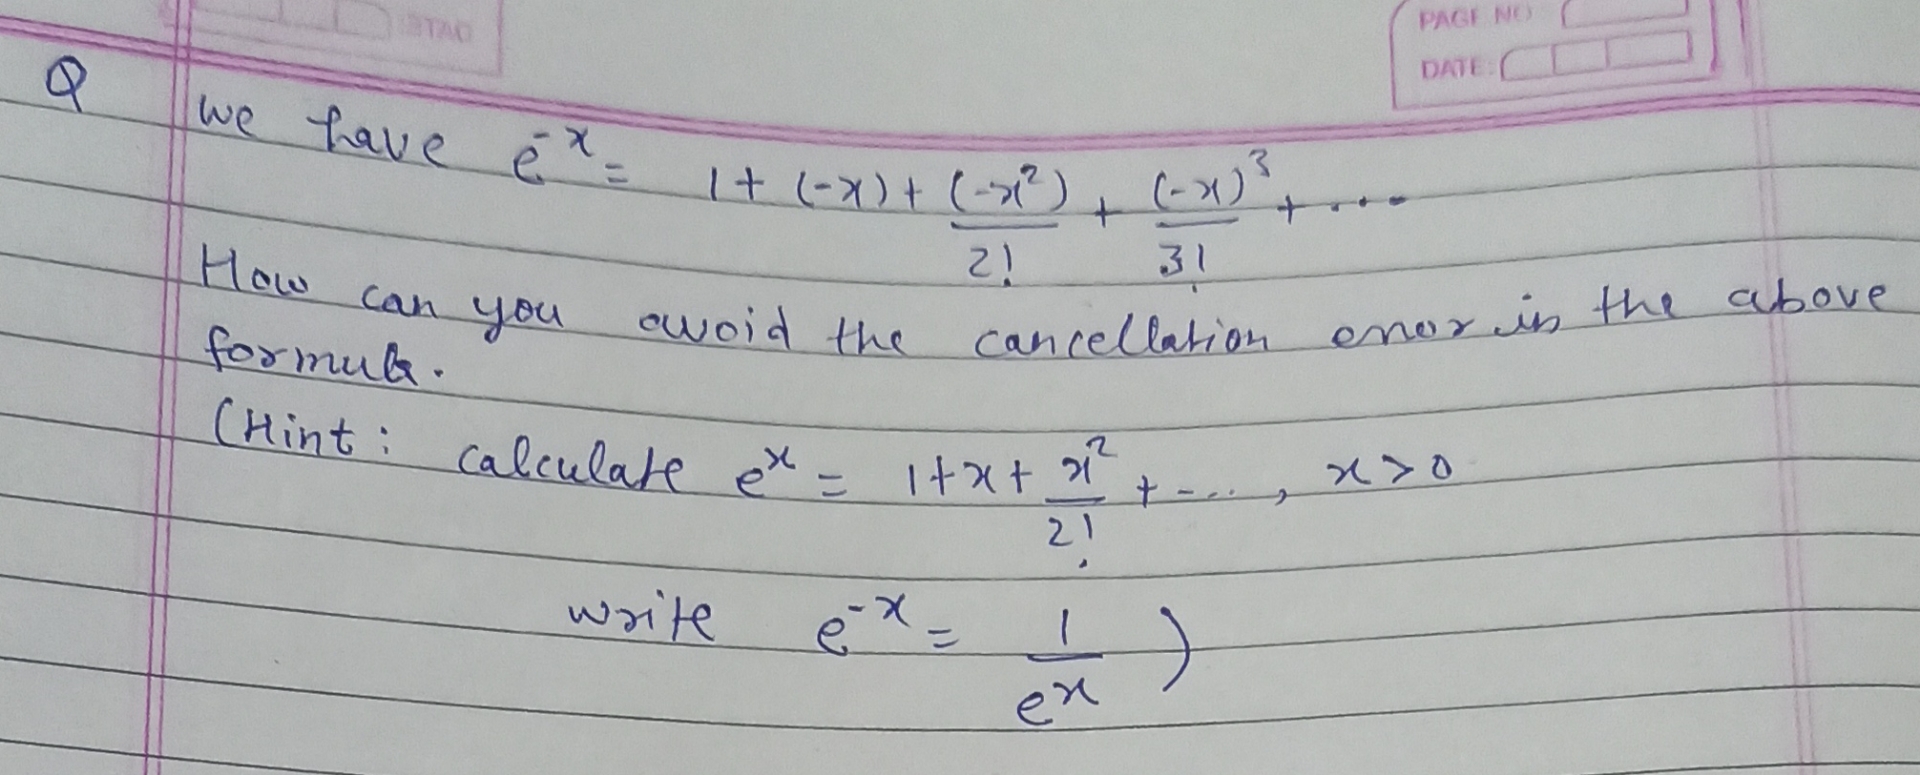 PAGE NO
DATE:
Q we have e^-x = 1 + (-x) + (-x²)/2! + (-x)³/3! + ....
How can you avoid the cancellation error in the above
formula.
(Hint : calculate e^x = 1+x+ x²/2! + -..., x>0
write e^-x = 1/e^x )